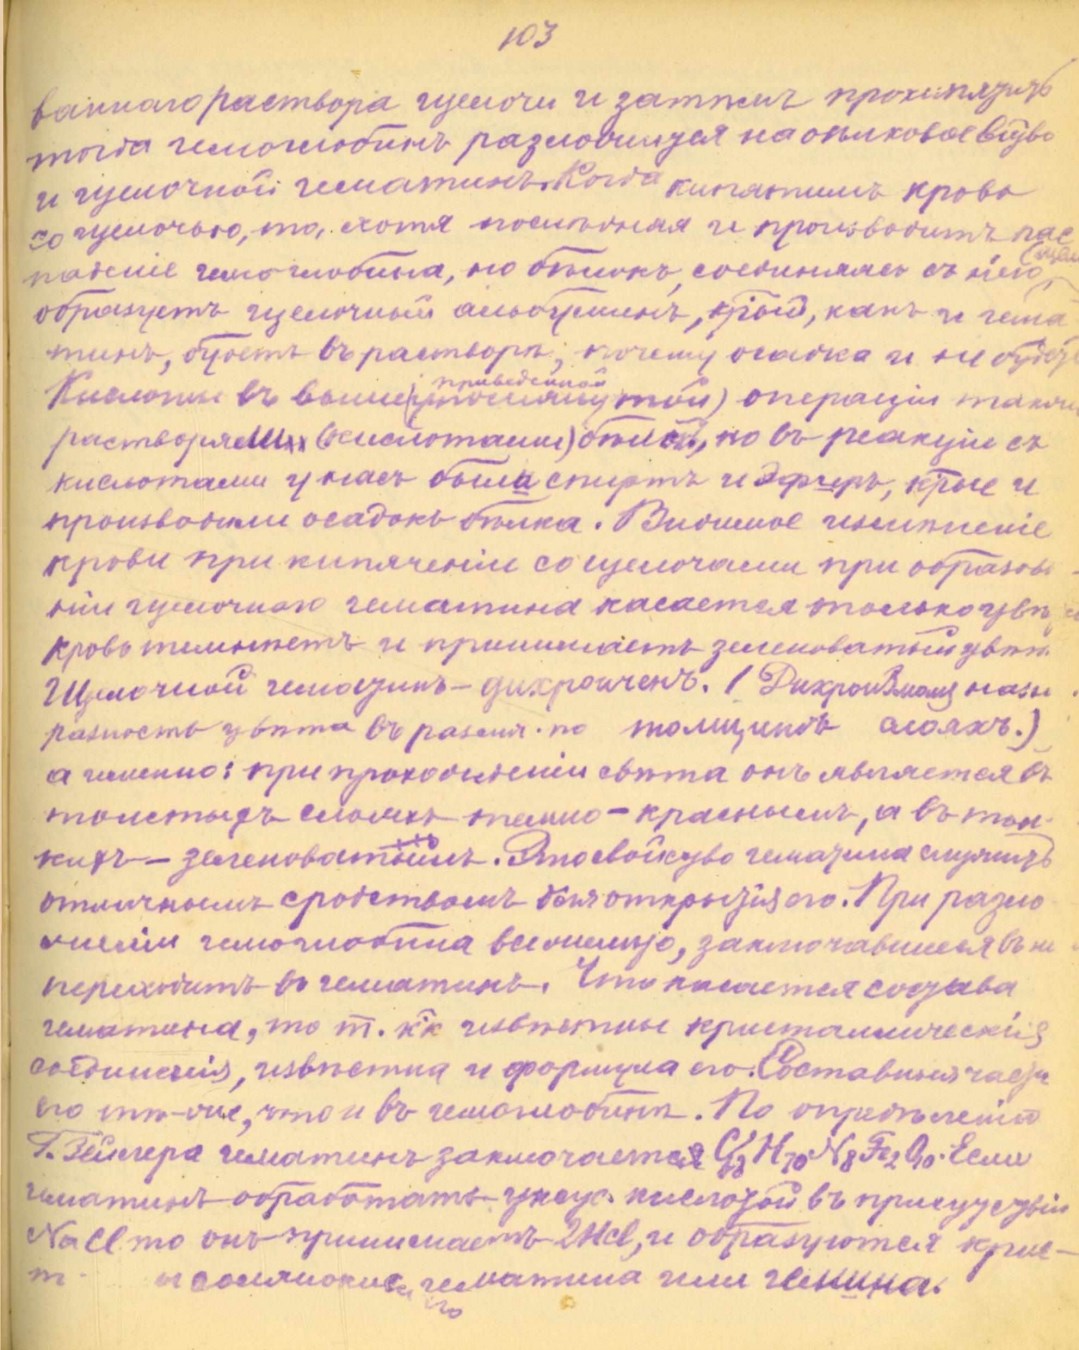 103
ваннаго раствора щелочи и затѣмъ прокипятить
тогда гемоглобинъ разложится на бѣлковое в-во
и щелочной гематинъ. Когда кипятимъ кровь
со щелочью, то, хотя послѣдняя и производитъ рас
паденіе гемоглобина, но бѣлокъ, соединяясь съ нею
образуетъ щелочный альбуминъ, крый, какъ и гема
тинъ, будетъ въ растворѣ, почему осадка и не будетъ
Кислоты въ выше(приведенной упомянутой) операціи также
растворяли (кислотами) бѣлокъ, но въ реакціи съ
кислотами у насъ были спиртъ и эфиръ, крые и
производили осадокъ бѣлка. Видимое измѣненіе
крови при кипяченіи со щелочами при образова-
ніи щелочного гематина касается только цвѣта
кровь темнѣетъ и принимаетъ зеленоватый цвѣтъ.
Щелочной гематинъ – дихроиченъ. (Дихроизмомъ назыв.
разность цвѣта въ различ. по толщинѣ слояхъ.)
а именно: при прохожденіи свѣта онъ является въ
толстыхъ слояхъ темно-краснымъ, а въ тон-
кихъ – зеленоватымъ. Это свойство гематина служитъ
отличнымъ средствомъ для открытія его. При разло
женіи гемоглобина все желѣзо, заключавшееся въ не
переходитъ въ гематинъ. Что касается состава
гематина, то т. кк извѣстны кристаллическія
соединенія, извѣстна и формула его. Составныя части
его тѣ-же, что и въ гемоглобинѣ. По опредѣленію
заключается C68H70N8Fe2O10. Если
гематинъ обработать уксус. кислотой въ присутствіи
NaCl то онъ принимаетъ 2HCl, и образуются крис-
т солянокис. гематина или гемина.